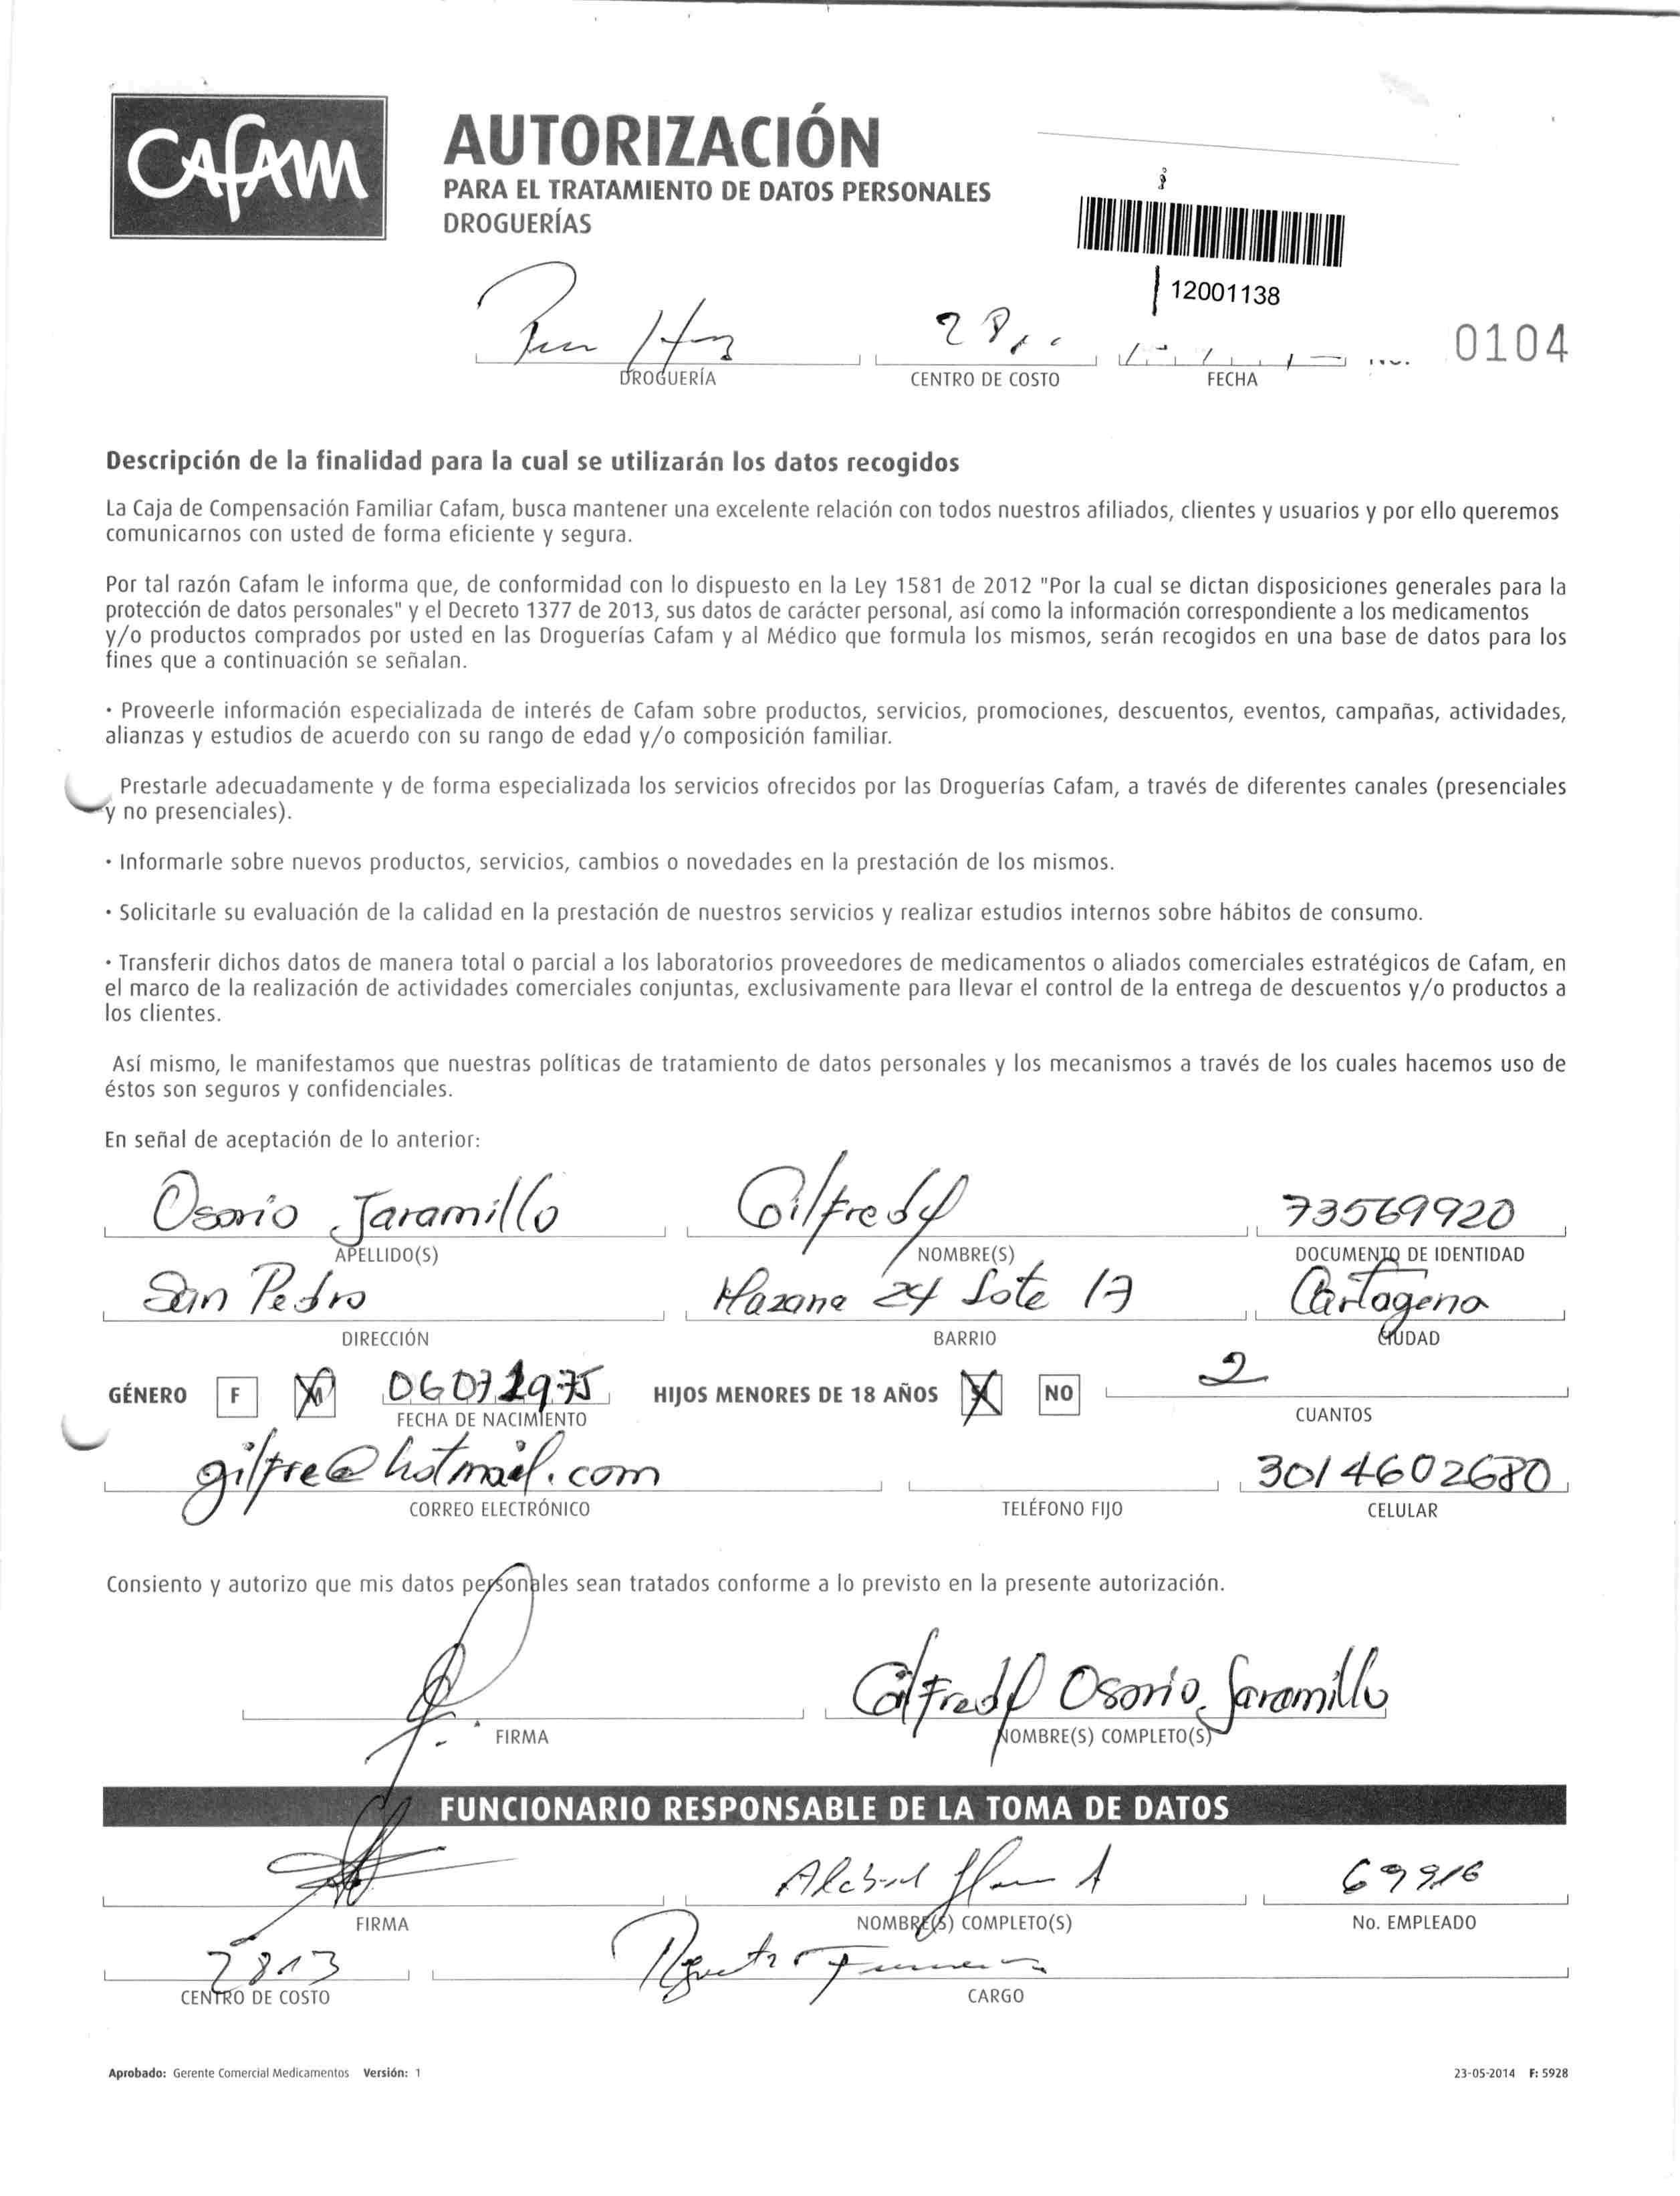 CAFAM
AUTORIZACIÓN
PARA EL TRATAMIENTO DE DATOS PERSONALES
DROGUERÍAS
12001138
0104
DROGUERÍA CENTRO DE COSTO FECHA
Descripción de la finalidad para la cual se utilizarán los datos recogidos
La Caja de Compensación Familiar Cafam, busca mantener una excelente relación con todos nuestros afiliados, clientes y usuarios y por ello queremos
comunicarnos con usted de forma eficiente y segura.
Por tal razón Cafam le informa que, de conformidad con lo dispuesto en la Ley 1581 de 2012 "Por la cual se dictan disposiciones generales para la
protección de datos personales" y el Decreto 1377 de 2013, sus datos de carácter personal, así como la información correspondiente a los medicamentos
y/o productos comprados por usted en las Droguerías Cafam y al Médico que formula los mismos, serán recogidos en una base de datos para los
fines que a continuación se señalan.
· Proveerle información especializada de interés de Cafam sobre productos, servicios, promociones, descuentos, eventos, campañas, actividades,
alianzas y estudios de acuerdo con su rango de edad y/o composición familiar.
Prestarle adecuadamente y de forma especializada los servicios ofrecidos por las Droguerías Cafam, a través de diferentes canales (presenciales
y no presenciales).
· Informarle sobre nuevos productos, servicios, cambios o novedades en la prestación de los mismos.
· Solicitarle su evaluación de la calidad en la prestación de nuestros servicios y realizar estudios internos sobre hábitos de consumo.
· Transferir dichos datos de manera total o parcial a los laboratorios proveedores de medicamentos o aliados comerciales estratégicos de Cafam, en
el marco de la realización de actividades comerciales conjuntas, exclusivamente para llevar el control de la entrega de descuentos y/o productos a
los clientes.
Así mismo, le manifestamos que nuestras políticas de tratamiento de datos personales y los mecanismos a través de los cuales hacemos uso de
éstos son seguros y confidenciales.
En señal de aceptación de lo anterior:
Osorio Jaramillo Gilfredy 73569920
APELLIDO(S) NOMBRE(S) DOCUMENTO DE IDENTIDAD
San Pedro Mazana 24 Lote 17 Cartagena
DIRECCIÓN BARRIO CIUDAD
GÉNERO F M 06071975 HIJOS MENORES DE 18 AÑOS SI NO 2
FECHA DE NACIMIENTO CUANTOS
gilfre@hotmail.com 3014602680
CORREO ELECTRÓNICO TELÉFONO FIJO CELULAR
Consiento y autorizo que mis datos personales sean tratados conforme a lo previsto en la presente autorización.
Gilfredy Osorio Jaramillo
FIRMA NOMBRE(S) COMPLETO(S)
FUNCIONARIO RESPONSABLE DE LA TOMA DE DATOS
69916
FIRMA NOMBRE(S) COMPLETO(S) No. EMPLEADO
2813
CENTRO DE COSTO CARGO
Aprobado: Gerente Comercial Medicamentos Versión: 1 23-05-2014 F: 5928